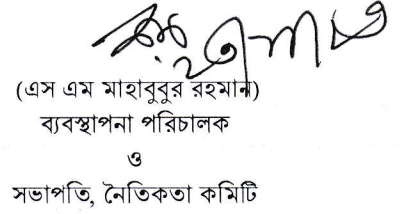 (এস এম মাহাবুবুর রহমান)
ব্যবস্থাপনা পরিচালক
ও
সভাপতি, নৈতিকতা কমিটি